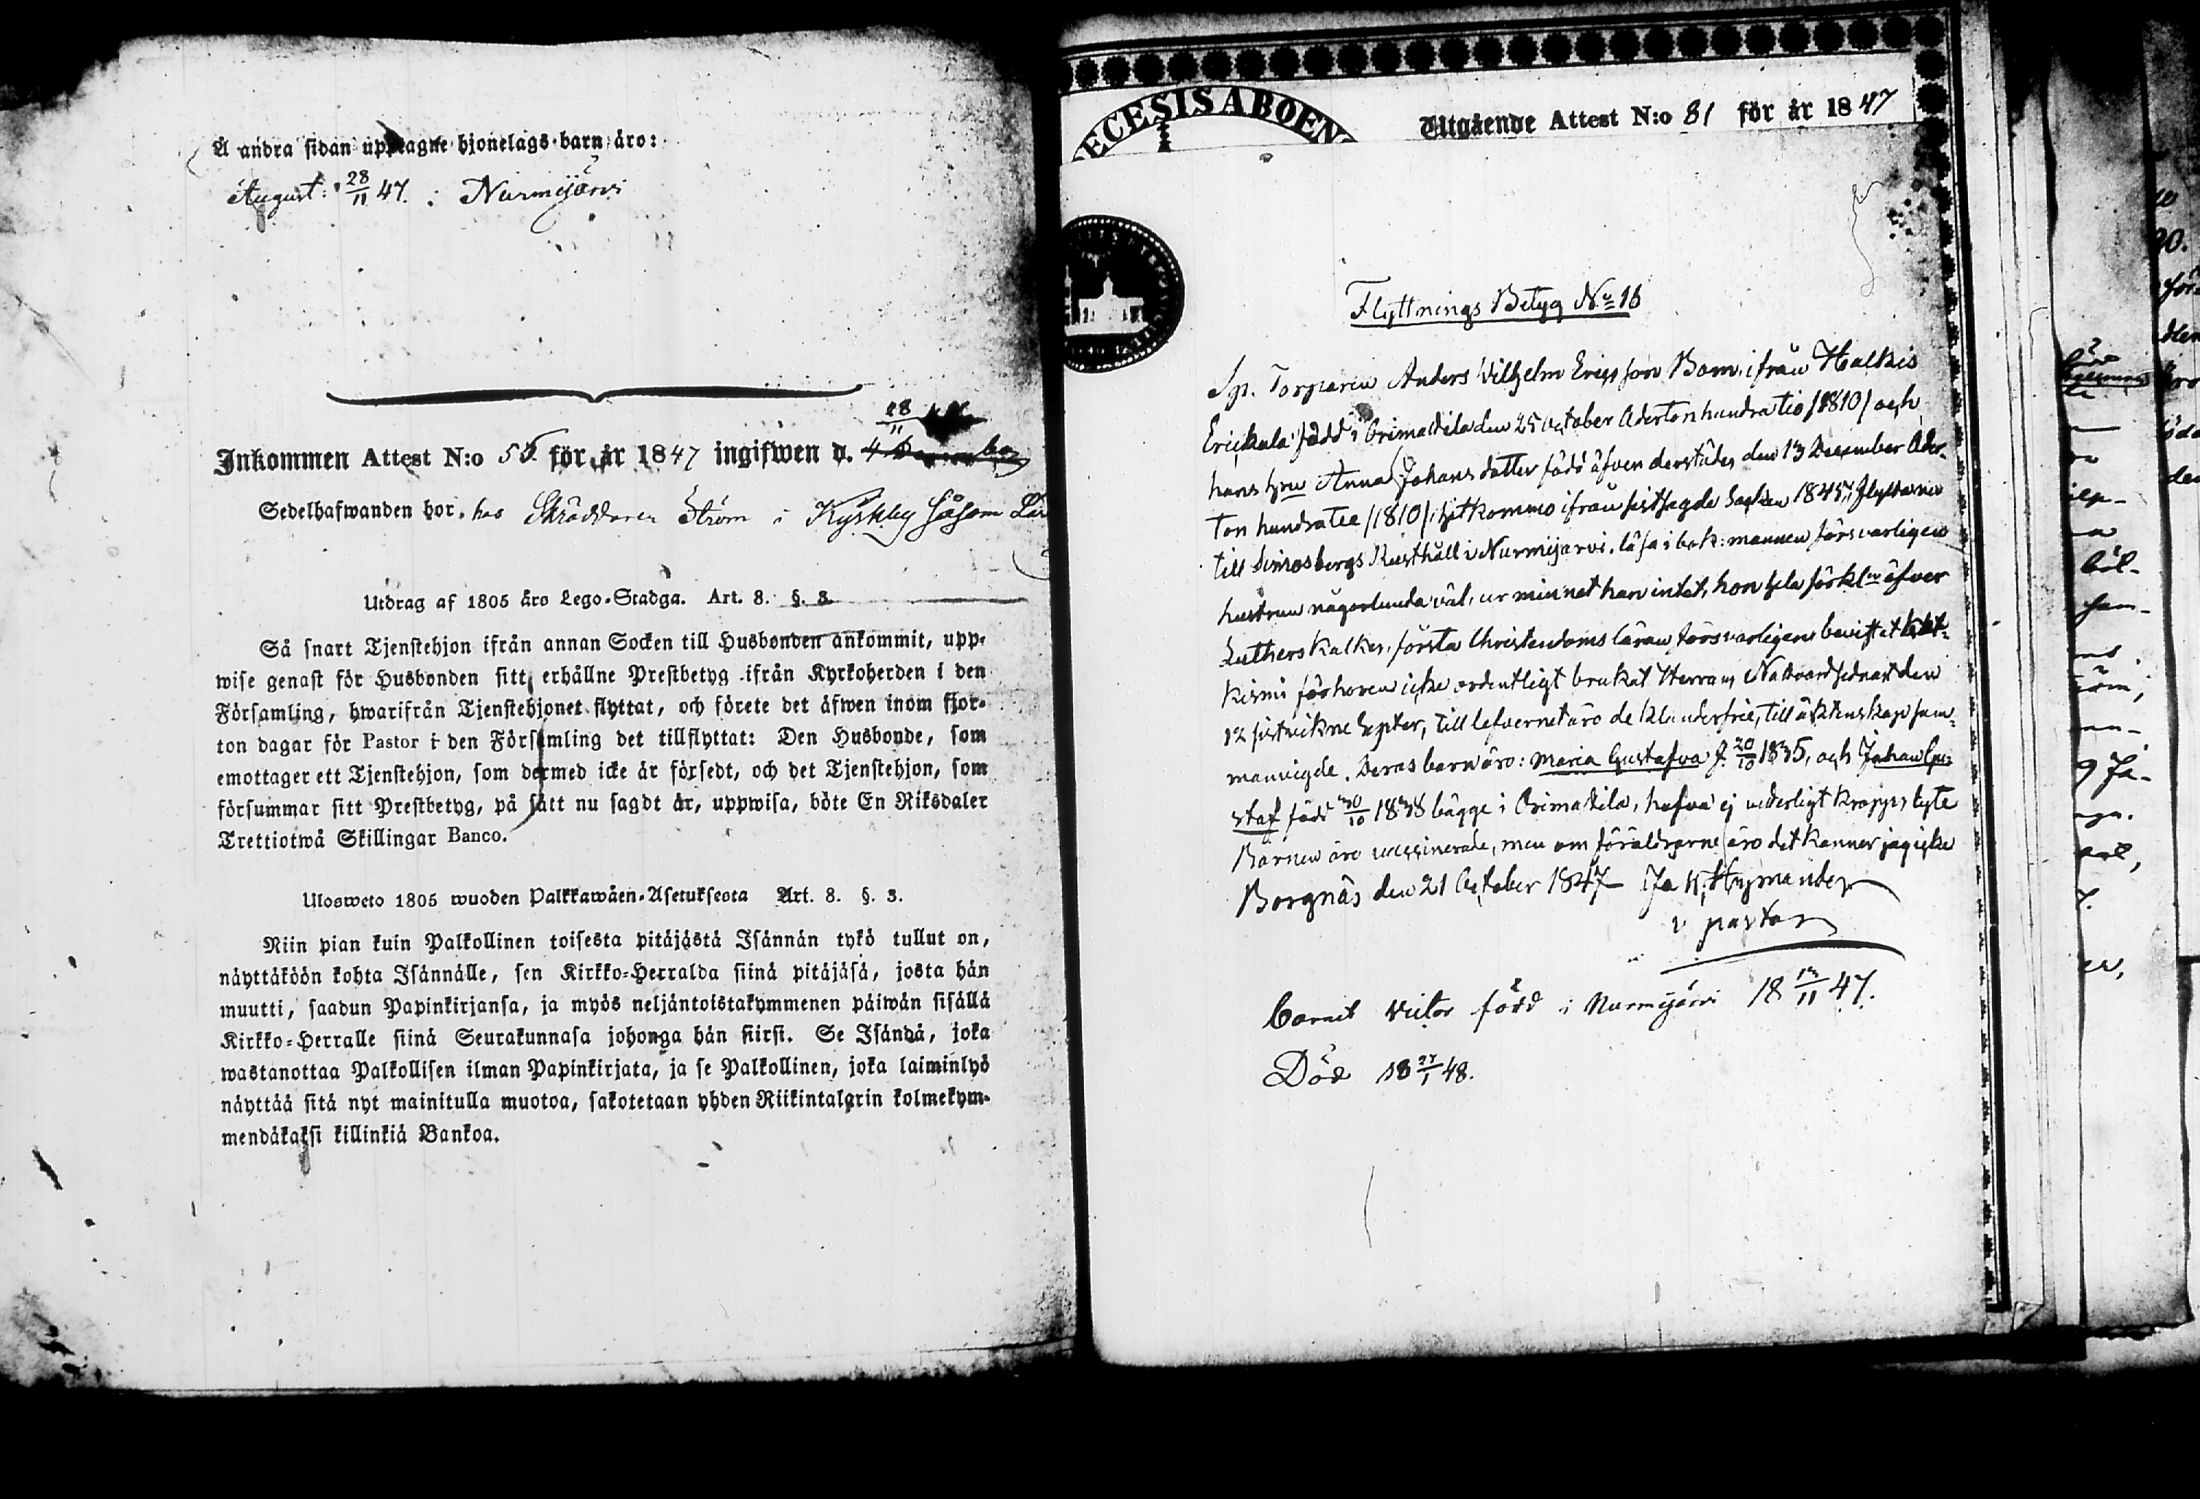 Å andra sidan upptagne hjonelags-barn äro:
August: 28/11 47. i Nurmijärvi
28/11
Inkommen Attest N:o 55 för år 1847 ingifwen d. 4
Sedelhafwanden bor. hos Skräddaren Ström i Kyrkby såsom
Utdrag af 1805 års Lego-Stadga. Art. 8. §. 3.
Så snart Tjenstehjon ifrån annan Socken till Husbonden ankommit, upp-
wise genast för Husbonden sitt erhållne Prestbetyg ifrån Kyrkoherden i den
Församling, hwarifrån Tjenstehjonet flyttat, och förete det äfwen inom fjor-
ton dagar för Pastor i den Församling det tillflyttat: Den Husbonde, som
emottager ett Tjenstehjon, som dermed icke är försedt, och det Tjenstehjon, som
försummar sitt Prestbetyg, på sätt nu sagdt är, uppwisa, böte En Riksdaler
Trettiotwå Skillingar Banco.
Ulosweto 1805 wuoden Palkkawäen-Asetuksesta Art. 8. §. 3.
Niin pian kuin Palkollinen toisesta pitäjästä Isännän tykö tullut on,
näyttäköön kohta Isännälle, sen Kirkko-Herralda siinä pitäjäsä, josta hän
muutti, saadun Papinkirjansa, ja myös neljäntoistakymmenen päiwän sisällä
Kirkko-Herralle siinä Seurakunnasa johonga hän siirsi. Se Isändä, joka
wastanottaa Palkollisen ilman Papinkirjata, ja se Palkollinen, joka laiminlyö
näyttää sitä nyt mainitulla muotoa, sakotetaan yhden Riikintalarin kolmekym-
mendäkaksi killinkiä Bankoa.
ECESIS ABOEN
Utgående Attest N:o 81 för år 1847
Flyttnings Betyg No 16
Sp. Torparen Anders Wilhelm Ericsson Bom, ifrån Halkis
Erickala född i Orimattila den 25 October Adertonhundratio /1810/ och
hans Hru Anna Johansdotter född äfven derstädes den 13 December Ader-
ton hundratio /1810/, hitkommo ifrån sistsagde Socken 1845, flyttar nu
till Simosbergs Rusthåll i Nurmijarvi. läsa i bok: mannen försvarligen
hustrun någorlunda väl, ur minnet han intet, hon hela förkl:n öfver
Lutheri Katkes, första Christendoms läran försvarligen, bevistat Kat-
kismi förhören icke ordentligt brukat Herrans Nattvard sednast den
12 sistvikne Septer, till lefvernet äro de klanderfrie, till äktenskap sam-
manvigde. Deras barn äro: Maria Gustafva f. 20/10 1835, och Johan Gu-
staf född 30/10 1838 bägge i Orimattila, hafva ej vederligt kropps lyte
Barnen äro vaccinerade, men om föräldrarne äro det känner jag icke
Borgnäs den 21 October 1847 Hymander
v pastor
Barnet Victor född i Nurmijärvi 18 13/11 47.
Död 18 27/1 48.